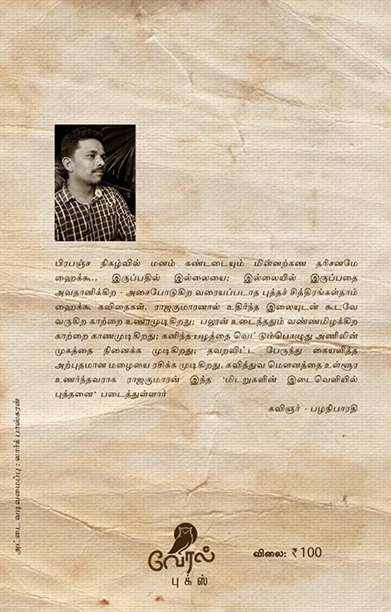 பிரபஞ்ச நிகழ்வில் மனம் கண்டடையும் மின்னற்கண தரிசனமே
ஹைக்கூ... இருப்பதில் இல்லையை; இல்லையில் இருப்பதை
அவதானிக்கிற - அசைபோடுகிற வரையப்படாத புத்தர் சித்திரங்கள்தாம்
ஹைக்கூ கவிதைகள். ராஜகுமாரனால் உதிர்ந்த இலையுடன் கூடவே
வருகிற காற்றை உணரமுடிகிறது; பலூன் உடைந்ததும் வண்ணமிழக்கிற
காற்றை காணமுடிகிறது; கனிந்த பழத்தை வெட்டும்பொழுது அணிலின்
முகத்தை நினைக்க முடிகிறது; தவறவிட்ட பேருந்து கையளித்த
அற்புதமான மழையை ரசிக்க முடிகிறது. கவித்துவ மௌனத்தை உள்ளூர
உணர்ந்தவராக ராஜகுமாரன் இந்த 'மிடறுகளின் இடைவெளியில்
புத்தனை' படைத்துள்ளார்
கவிஞர் - பழநிபாரதி
அட்டை வடிவமைப்பு : லார்க் பாஸ்கரன்
வேரல்
புக்ஸ்
விலை: ₹ 100